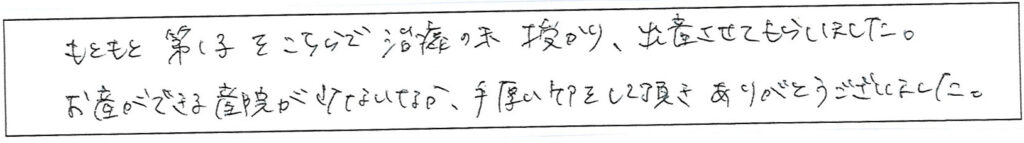 もともと第1子をこちらで治療の末授かり、出産させてもらいました。
お産ができる産院が少ないなか、手厚いケアをして頂きありがとうございました。